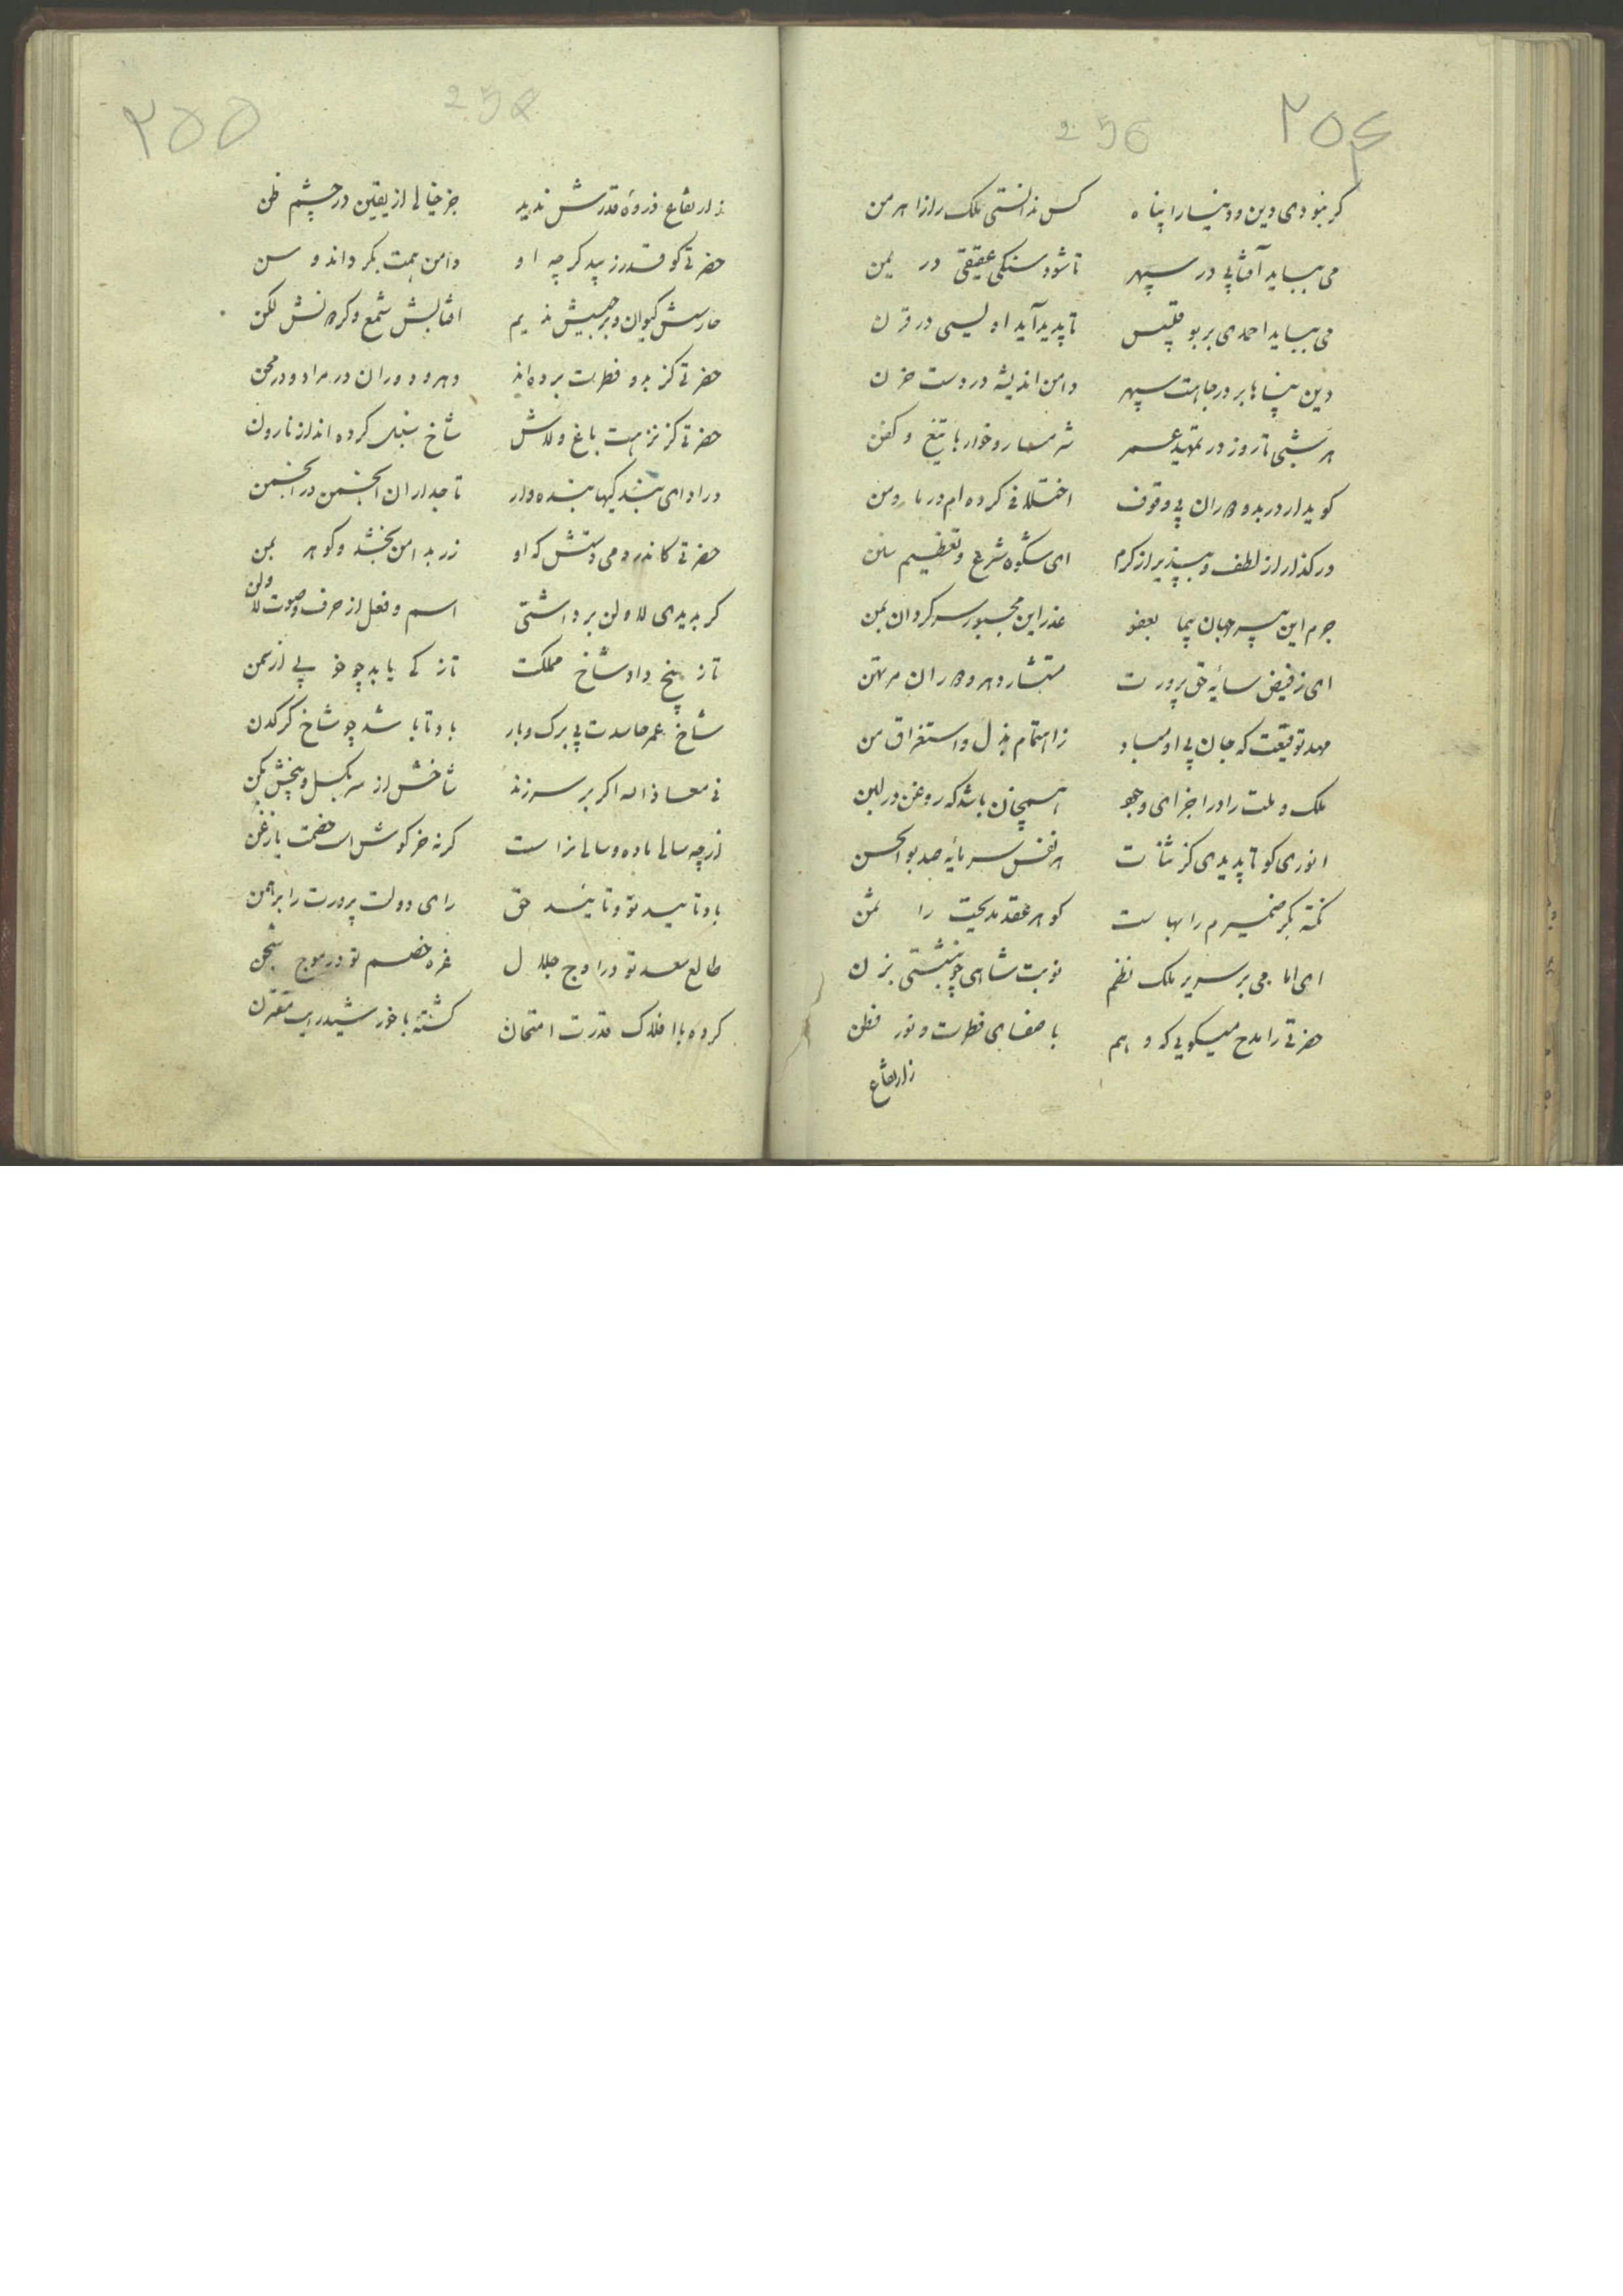 ۲۵۴
256
کر نبودی دین و دنیا را پناه کس ندانستی ملک را از اهرمن
می بباید آفتابی در سپهر تا شود سنکی عقیقی در یمن
می بباید احمدی بر بوقبیس تا پدید آید اویسی در قرن
دین پناها بر درجاهت سپهر دامن اندیشه در دست حزن
هر شبی تا روز در تمهید عسر شرمسار و خوار با تیغ و کفن
کوید ار در بدو دوران بی وقوف اختلافی کرده‌ام در ما و من
در کذار از لطف و بپذیر از کرم ای شکوه شرع و تعظیم سنن
جرم این پیر جهان پیما بعفو عذر این مجبور سرکردان بمن
ای ز فیض سایه حق پرورت مستشار دهر و دوران مرتهن
مهد توقیعت که جان بی او مباد ز اهتمام بذل و استغراق من
ملک و ملت را در اجزای وجود همچنان باشد که روغن در لبن
انوری کو تا پدیدی کز ثنات هر نفس سرمایه صد بوالحسن
نکته بکر ضمیرم را بهاست کوهر عقد مدیحت را ثمن
ای امامی بر سریر ملک نظم نوبت شاهی چو بنشستی بزن
حضرتی را مدح میکویی که وهم با صفای فطرت و نور فطن
ز ارتفاع
۲۵۵
ز ارتفاع ذروه قدرش ندید جز خیالی از یقین در چشم ظن
حضرتی کو قدر زیبد کرچه او دامن همت بکرداند و سن
حارسش کیوان و برجیسش ندیم آفتابش شمع و کردونش لکن
حضرتی کز بدو فطرت برده‌اند دهر و دوران در مراد و در محن
حضرتی کز نزهت باغ ولاش شاخ سنبل کرده‌اند از نارون
در ادای بندکیها بنده وار تاجداران انجمن در انجمن
حضرتی کاندر دمی دستش که او زر بدامن بخشد و کوهر بمن
کر بدیدی لا و لن برداشتی اسم و فعل از حرف و صوت لا ولن
تا ز بیخ داد شاخ مملکت تازکی یابد چو خوبی از سمن
شاخ عمر حاسدت بی برک و بار باد تا باشد چو شاخ کرکدن
نی معاذ الله اکر بر سر زند شاخش از سر بکسل و بیخش بکن
زرچه سالی ماده و سالی نر است کرنه خرکوش است خصمت یا زغن
باد تایید تو و تایید حق رای دولت پرورت را برهمن
طالع سعد تو در اوج جلال غره خصم تو در موج شجن
کرده با افلاک قدرت امتحان کشته با خورشید رایت مقترن